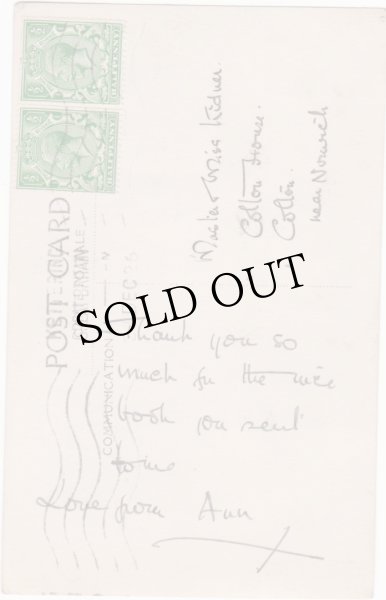 HALFPENNY
HALFPENNY
POST CARD
COMMUNICATION
Master & Miss Kidner.
Colton House.
Colton.
near Norwich
SOLD OUT
Thank you so
much for the nice
book you sent
to me
Love from Ann
X